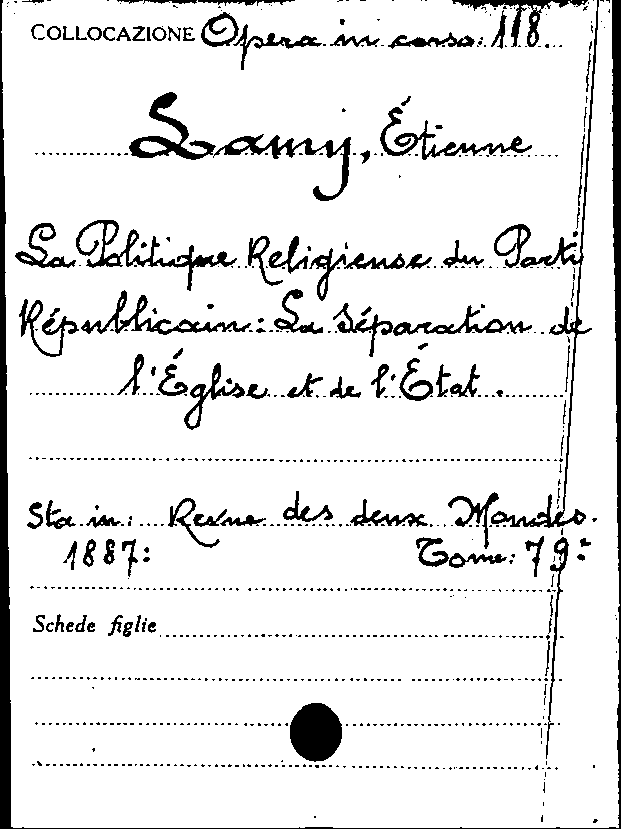 COLLOCAZIONE Opera in corso: 118.
Lamy, Étienne
La Politique Religieuse du Parti
Républicain: La Séparation de
l'Église et de l'État.
Sta in: Revue des deux Mondes.
1887: Tome: 79º
Schede figlie